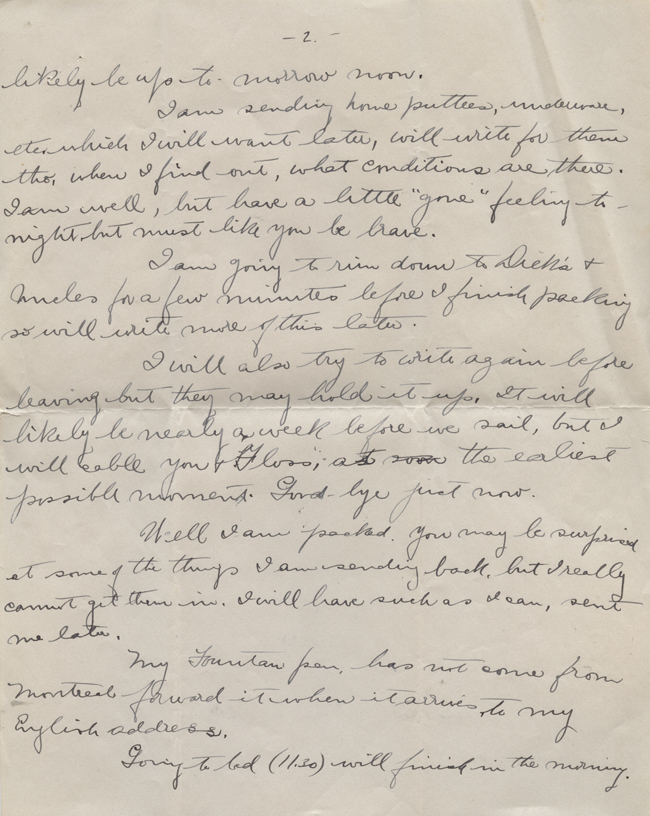 - 2. -
likely be up to-morrow noon.
I am sending home puttees, underware,
etc. which I will want later, will write for them
tho, when I find out, what conditions are there.
I am well, but have a little "gone" feeling to-
night but must like you be brave.
I am going to run down to Dick's &
Uncles for a few minutes before I finish packing
so will write more of this later.
I will also try to write again before
leaving but they may hold it up. It will
likely be nearly a week before we sail, but I
will cable you & Floss, at soon the earliest
possible moment. Good-bye just now.
Well I am packed. You may be surprised
at some of the things I am sending back, but I really
cannot get them in. I will have such as I can, sent
me later.
My Fountan pen, has not come from
Montreal forward it when it arrives, to my
English address.
Going to bed (11.30) will finish in the morning.